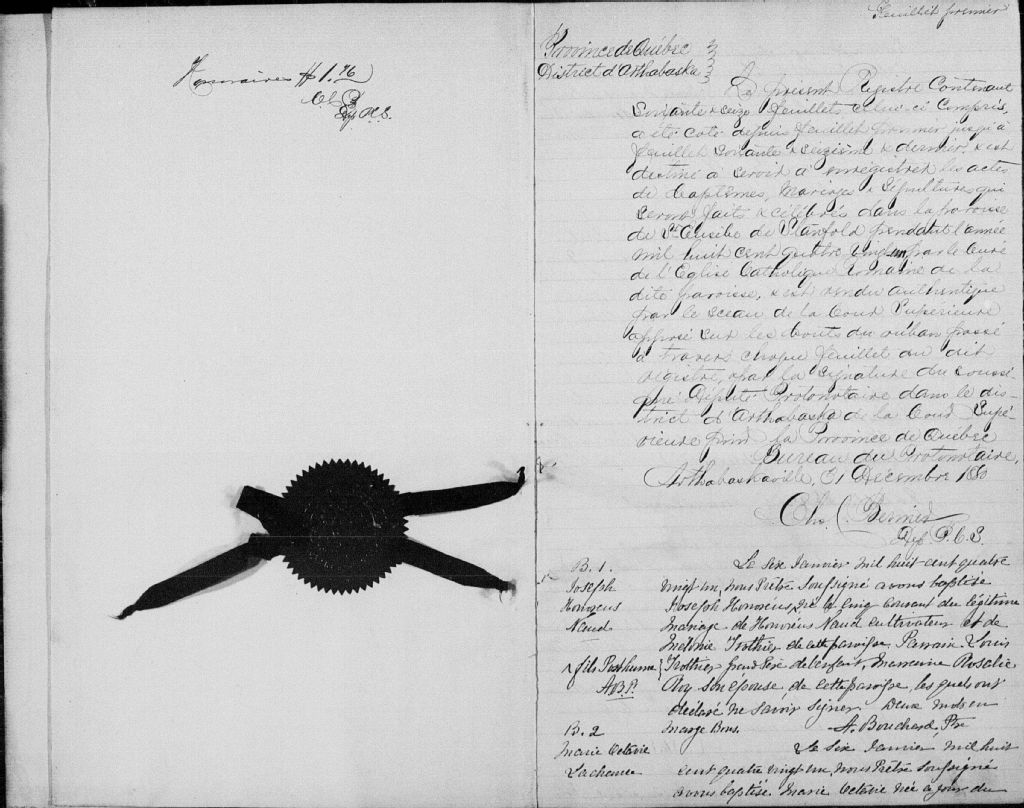 Honoraires $1.76
Dep P.C.S.
Feuillet premier
Province de Québec
District d'Arthabaska
Le présent Registre Contenant
Soixante & seize feuillets celui-ci compris,
a été coté depuis feuillet premier jusqu'à
feuillet soixante & seizième & dernier, & est
destiné à servir à enregistrer les actes
de Baptêmes, Mariages & Sépultures qui
seront faits & célébrés dans la paroisse
de St Eusèbe de Stanfold pendant l'année
mil huit cent quatre vingt-un par le Curé
de l'Eglise Catholique Romaine de la
dite paroisse, & est rendu authentique
par le sceau de la Cour Supérieure
apposé sur les bouts du ruban passé
à travers chaque feuillet du dit
registre, & par la signature du soussi-
gné Député Protonotaire dans le dis-
trict d'Arthabaska de la Cour Supé-
rieure pour la Province de Québec
Bureau du Protonotaire,
Arthabaskaville, 31 Décembre 1880
Chs. C. Bernier
Dep P.C.S.
B. 1.
Joseph
Honoreus
Naud
^ fils Posthume
A.B.P.
Le six Janvier mil huit cent quatre
vingt un, nous Prêtre soussigné avons baptisé
Joseph Honoréus, né le cinq courant du légitime
mariage de Honoréus Naud cultivateur et de
Mélonie Trothier de cette paroisse. Parrain Louis
Trothier grand Père de l'enfant, marraine Rosalie
Roy son épouse de cette paroisse, lesquels ont
déclaré ne savoir signer. Deux mots en
marge Bons. A. Bouchard, Ptre
B. 2
Marie Octavie
Lachance
Le six Janvier mil huit
cent quatre vingt un, nous Prêtre soussigné
avons baptisé Marie Octavie née ce jour du